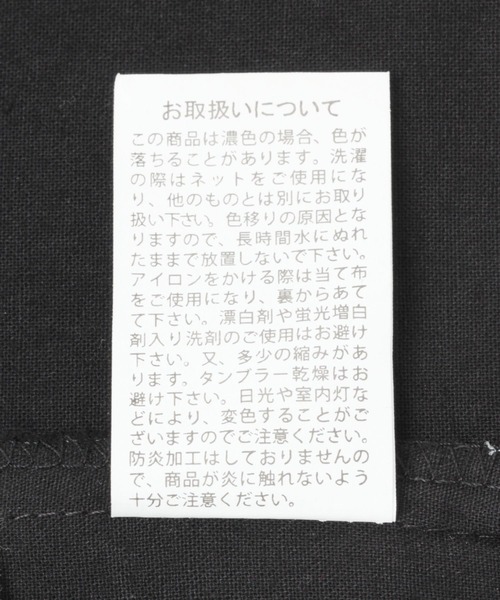 お取扱いについて
この商品は濃色の場合、色が
落ちることがあります。洗濯
の際はネットをご使用にな
り、他のものとは別にお取り
扱い下さい。色移りの原因とな
りますので、長時間水にぬれ
たままで放置しないで下さい。
アイロンをかける際は当て布
をご使用になり、裏からあて
て下さい。漂白剤や蛍光増白
剤入り洗剤のご使用はお避け
下さい。又、多少の縮みがあ
ります。タンブラー乾燥はお
避け下さい。日光や室内灯な
どにより、変色することがご
ざいますのでご注意ください。
防炎加工はしておりませんの
で、商品が炎に触れないよう
十分ご注意ください。